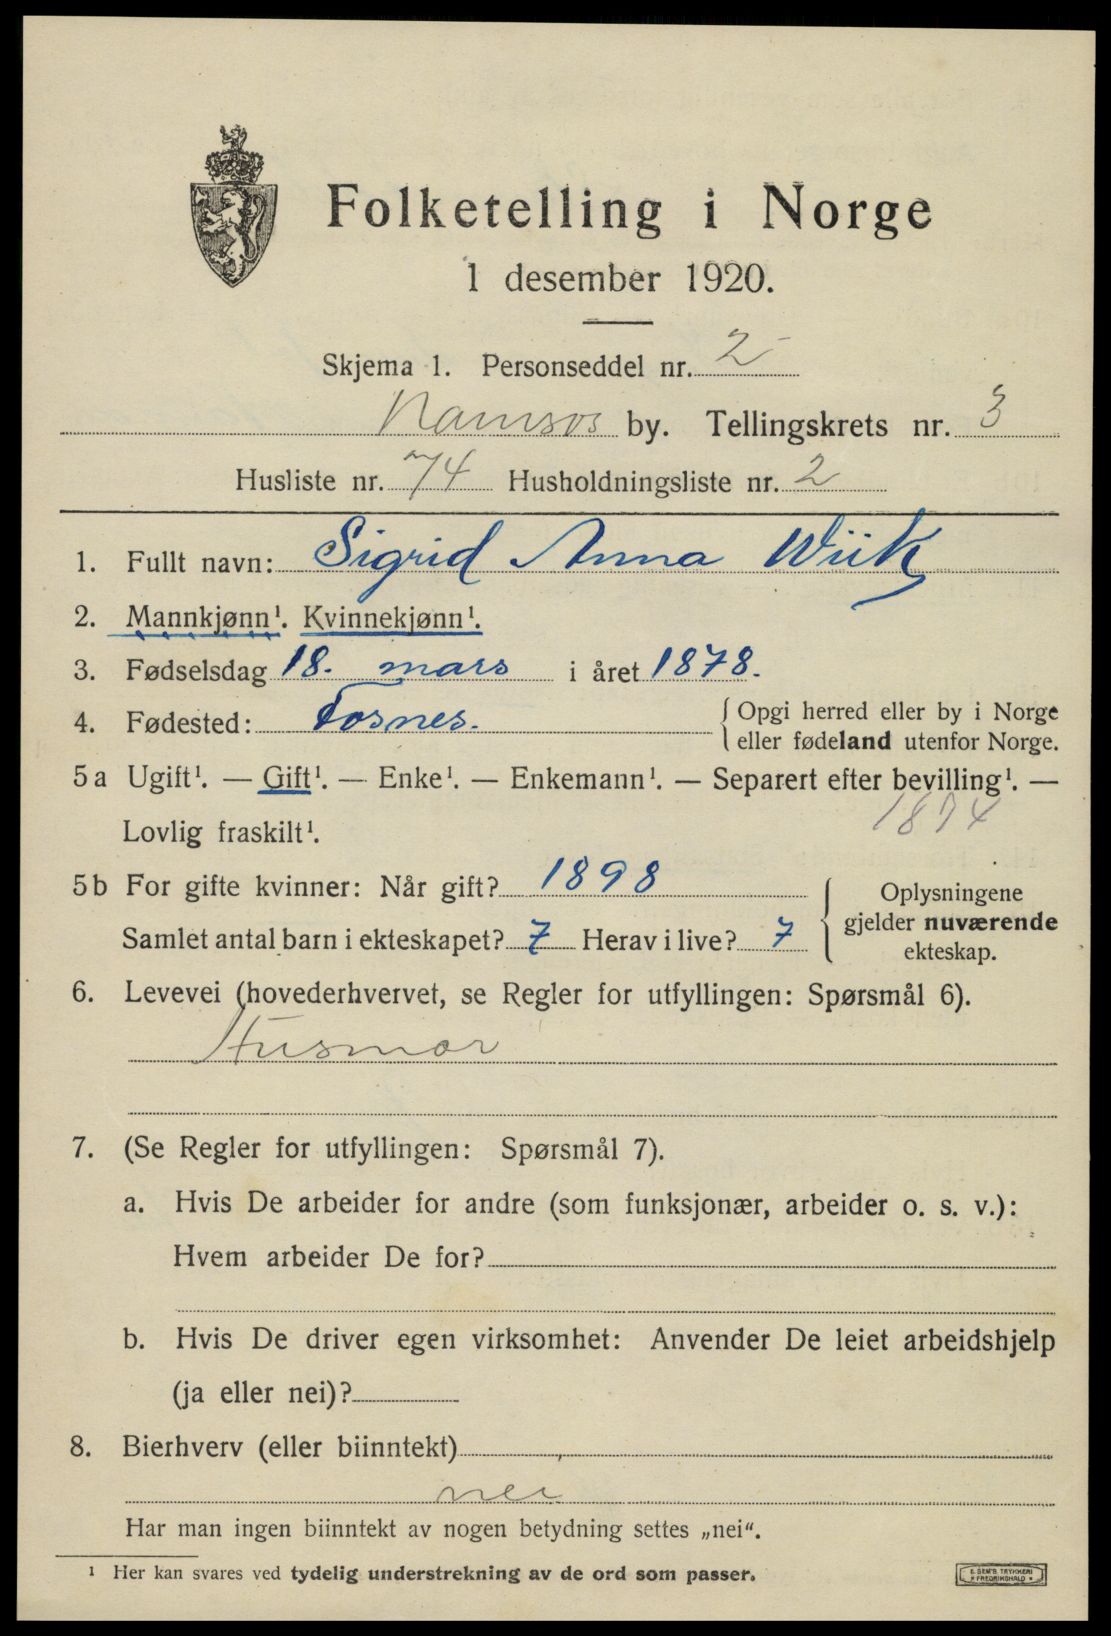 Folketelling i Norge
1 desember 1920.
Skjema 1. Personseddel nr. 2
Namsos by. Tellingskrets nr. 3
Husliste nr. 74 Husholdningsliste nr. 2
1. Fullt navn: Sigrid Anna Wiik
2. Mannkjønn¹. Kvinnekjønn¹.
3. Fødselsdag 18. mars i året 1878.
4. Fødested: Fosnes. {Opgi herred eller by i Norge
eller fødeland utenfor Norge.
5a Ugift¹. — Gift¹. — Enke¹. — Enkemann¹. — Separert efter bevilling¹. —
Lovlig fraskilt¹. 1874
5b For gifte kvinner: Når gift? 1898
Samlet antal barn i ekteskapet? 7 Herav i live? 7
{Oplysningene
gjelder nuværende
ekteskap.
6. Levevei (hovederhvervet, se Regler for utfyllingen: Spørsmål 6).
Husmor
7. (Se Regler for utfyllingen: Spørsmål 7).
a. Hvis De arbeider for andre (som funksjonær, arbeider o. s. v.):
Hvem arbeider De for?
b. Hvis De driver egen virksomhet: Anvender De leiet arbeidshjelp
(ja eller nei)?
8. Bierhverv (eller biinntekt)
nei
Har man ingen biinntekt av nogen betydning settes „nei“.
¹ Her kan svares ved tydelig understrekning av de ord som passer.
E. SEM'S TRYKKERI
FREDRIKSHALD